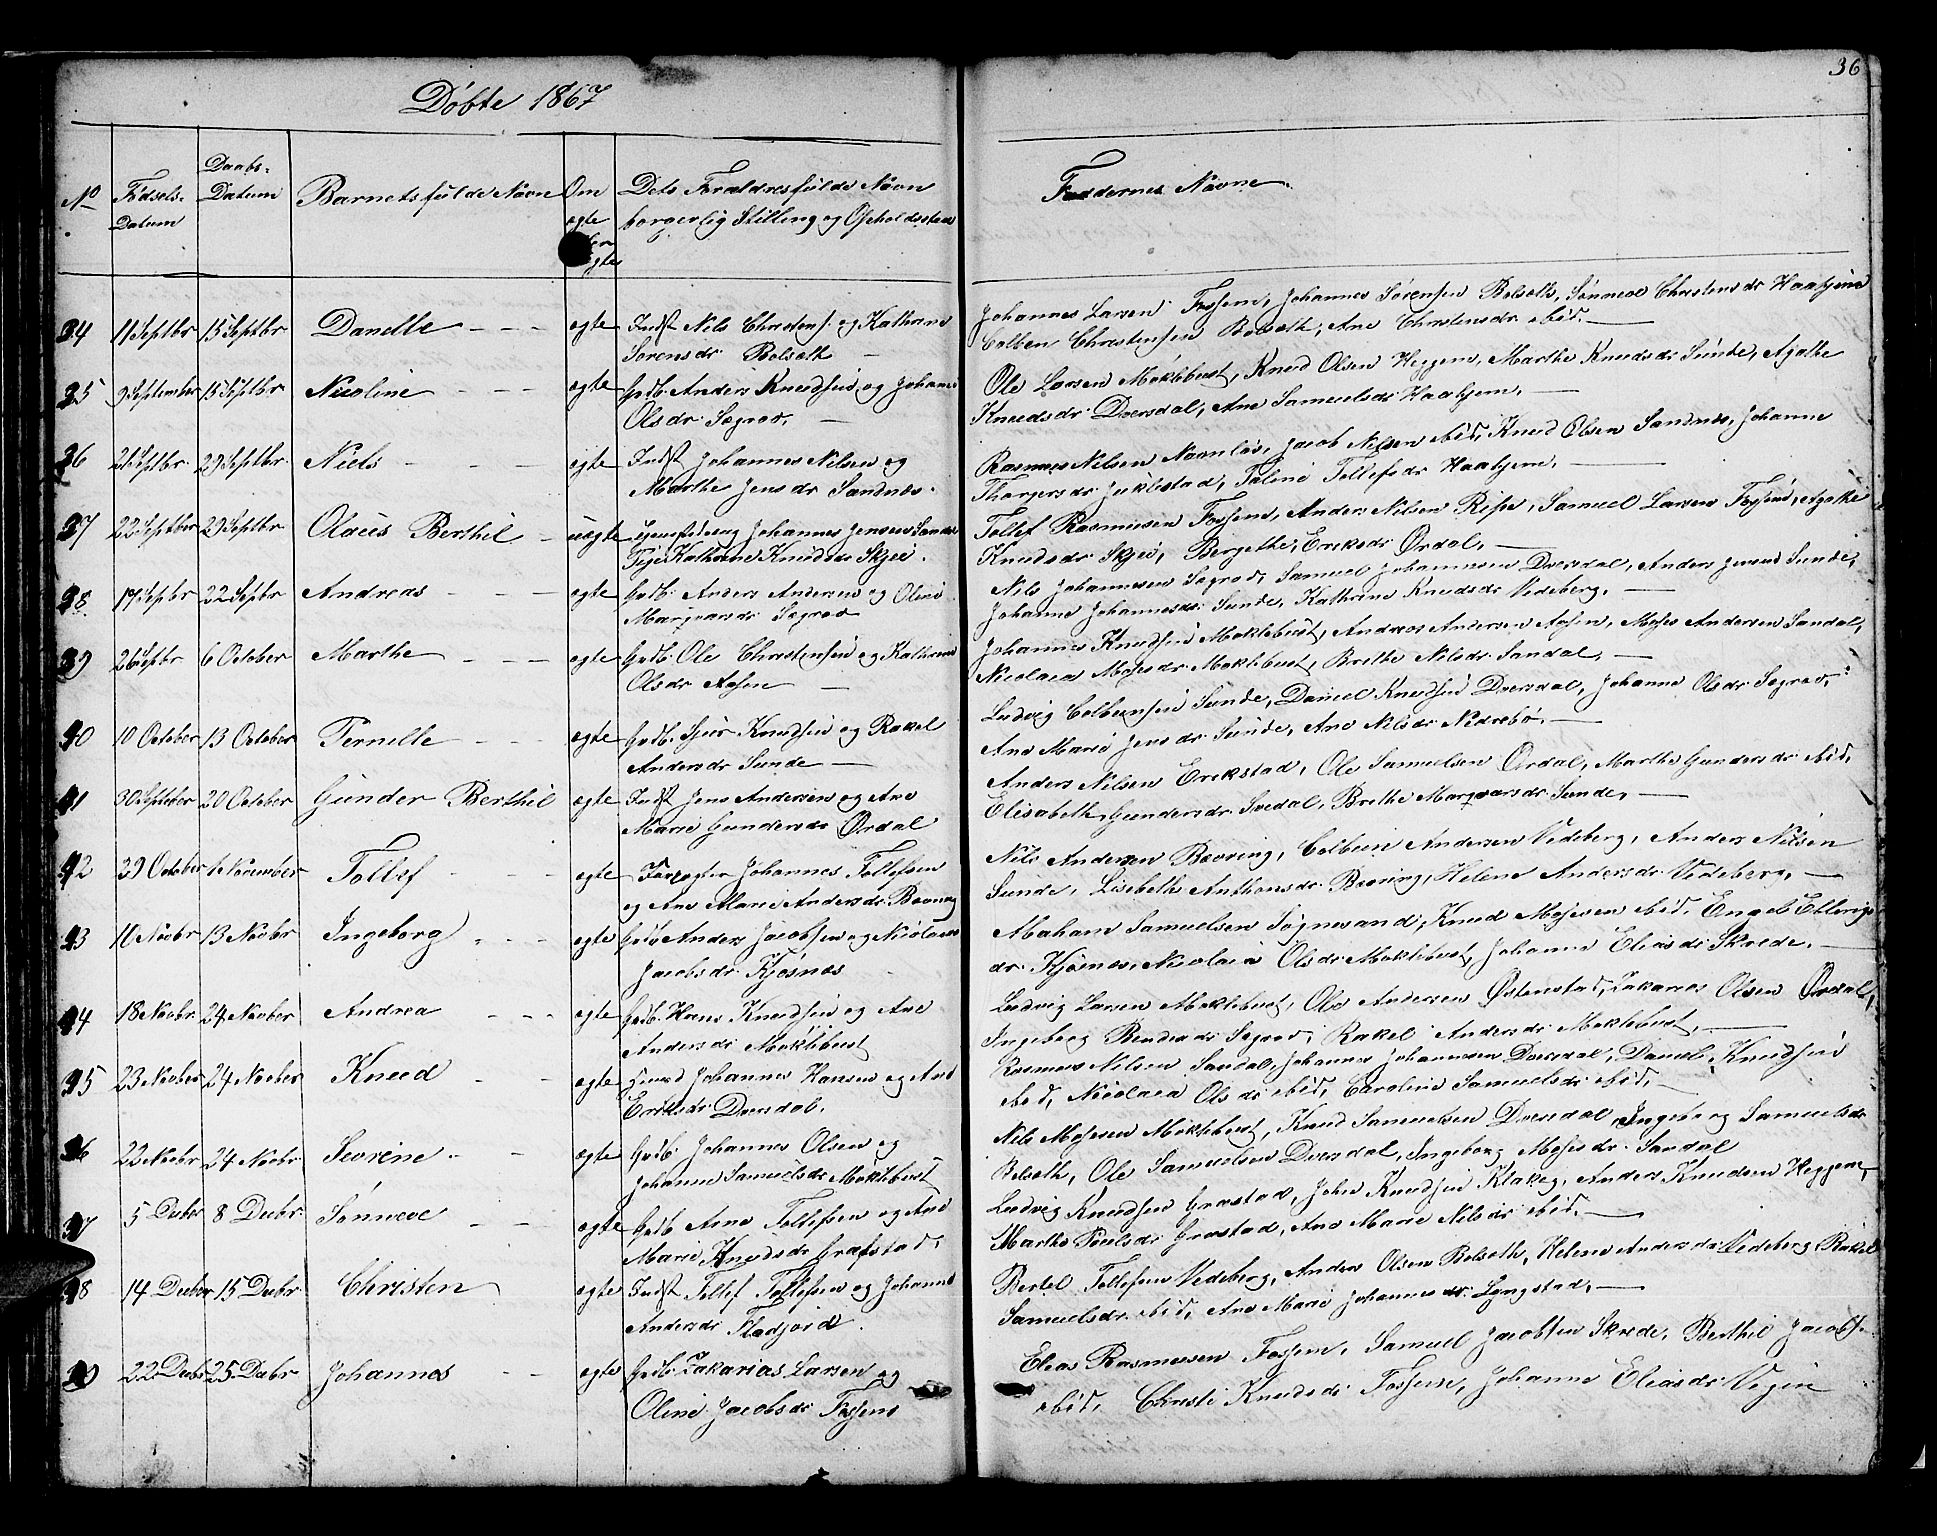 36
Døbte 1867
No
Fødsels-
Datum
Daabs-
Datum
Barnets fulde Navn
Om
ægte
eller
uægte
Dets Forældres fulde Navn
borgerlig Stilling og Opholdssted
Faddernes Navne
34 11 Septbr 15 Septbr Danelle ægte Indst Nils Christens. og Kathrine
Sørensdr Bolsæth
Johannes Larsen Fossem, Johannes Sørensen Bolseth, Sønneve Christensdr Haahjem
Colben Christensen Bolsæth, Ane Christensdr ibid.
35 9 September 15 Septbr Nicoline ægte Grdb. Anders Knudsen og Johanne
Olsdr Søgrov.
Ole Larsen Møklebust, Knud Olsen Heggem, Marthe Knudsdr Sunde, Agathe
Knudsdr Dversdal, Ane Samuelsdr Haahjem.
36 21 Septbr. 29 Septbr. Niels ægte Indst Johannes Nilsen og
Marthe Jensdr Sandnæs.
Rasmus Nilsen Navnløs, Jacob Nilsen ibid, Knud Olsen Sandnæs, Johanne
Thorgersdr Juklestad, Taline Tollefsdr Haahjem.
37 22 Septber 29 Septbr Olaus Berthil uægte Johannes Jensen Sunde
Pige Kathrine Knudsdr Skjei.
Tollef Rasmusen Fossem, Anders Nilsen Ripe, Samuel Larsen Fossem, Agathe
Knudsdr Skjei, Bergethe Eriksdr Ørdal.
38 17 Septbr 22 Septbr Andreas ægte Grdb. Anders Andersen og Oline
Margvarsdr Søgrov
Nils Johannesen Søgrov, Samuel Johannesen Dversdal, Anders Jensen Sunde,
Johanne Johannesdr Sunde, Kathrine Knudsdr Vedeberg.
39 26 Septbr 6 October Marthe ægte Grdb. Ole Christensen og Kathrine
Olsdr Aasen
Johannes Knudsen Møklebust, Andreas Andersen Aasen, Moses Andersen Sandal,
Nicolaia Mosesdr Møklebust, Brithe Nilsdr Sandal.
40 10 October 13 October Pernille ægte Grdb. Sjur Knudsen og Rakel
Andersdr Sunde
Ludvig Colbensen Sunde, Daniel Knudsen Dversdal, Johanne Olsdr Søgrov,
Ane Marie Jensdr Sunde, Ane Nilsdr Nedrebø.
41 30 Septeber 20 October Gunder Berthil ægte Indst Jens Andersen og Ane
Marie Gundersdr Ørdal
Anders Nilsen Erikstad, Ole Samuelsen Ørdal, Marthe Gundersdr ibid,
Elisabeth Gundersdr Svedal, Brithe Margvarsdr Sunde.
42 29 October 1 November Tollef ægte Forpagter Johannes Tollefsen
og Ane Marie Andersdr Bævring
Nils Andersen Bævring, Colbein Andersen Vedeberg, Anders Nilsen
Sunde, Lisebeth Anthonsdr Bævring, Helene Andersdr Vedeberg.
43 11 Novbr 13 Novbr Ingeborg ægte Grdb Anders Jacobsen og Nicolaia
Jacobsdr Kjøsnæs
Abraham Samuelsen Søgnesand, Knud Mosesen ibid. Engel Ellings
dr. Kjøsnæs, Nicolaia Olsdr Møklebust, Johanne Eliasdr Skrede.
44 18 Novbr 24 Novber Andrea ægte Grdb. Hans Knudsen og Ane
Andersdr Møklebust
Ludvig Larsen Møklebust, Ole Andersen Østenstad, Zakarias Olsen Ørdal,
Ingeborg Bendixdr Søgrov, Rakel Andersdr Møklebust,
45 23 Novber 24 Novber Knud ægte Johannes Hansen og Ane
Eriksdr Dversdal.
Rasmus Nilsen Sandal, Johannes Johannesen Dversdal, Daniel Knudsen
ibid, Nicolaia Olsdr ibid, Caroline Samuelsdr ibid.
46 22 Novbr 24 Novbr Severine ægte Grdb. Johannes Olsen og
Johanne Samuelsdr Møklebust
Nils Mosesen Møklebust, Knud Samuelsen Dversdal, Ingeborg Samuelsdr
Bolseth, Ole Samuelsen Dversdal, Ingeborg Mosesdr Sandal
47 5 Decbr 8 Decbr. Sønneve ægte Grdb Arne Tollefsen og Ane
Marie Knudsdr Grafstad.
Ludvig Knudsen Gravstad, John Knudsen Klakeg, Anders Knudsen Heggem,
Marthe Poulsdr Gravstad, Ane Marie Nilsdr ibid.
48 14 Decber 15 Decbr Christen ægte Indst Tollef Tollefsen og Johanne
Andersdr Fladjord.
Bertel Tollefsen Vedeberg, Anders Olsen Bolseth, Helene Andersdr Vedeberg Rakel
Samuelsdr ibid, Ane Marie Johannesdr Lyngstad.
49 22 Decbr 25 Decbr Johannes ægte Grdb. Zakarias Larsen og
Oline Jacobsdr Fossem
Elias Rasmusen Fossem, Samuel Jacobsen Skrede, Berthil Jacobs.
ibid, Christi Knudsdr Fossem, Johanne Eliasdr Vegin